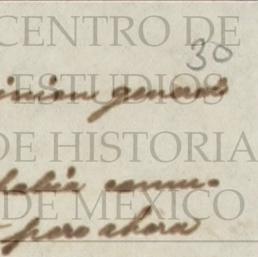 CENTRO DE
30
ESTUDIOS
inion general
DE HISTORIA
habia comu-
DE MEXICO
pero ahora